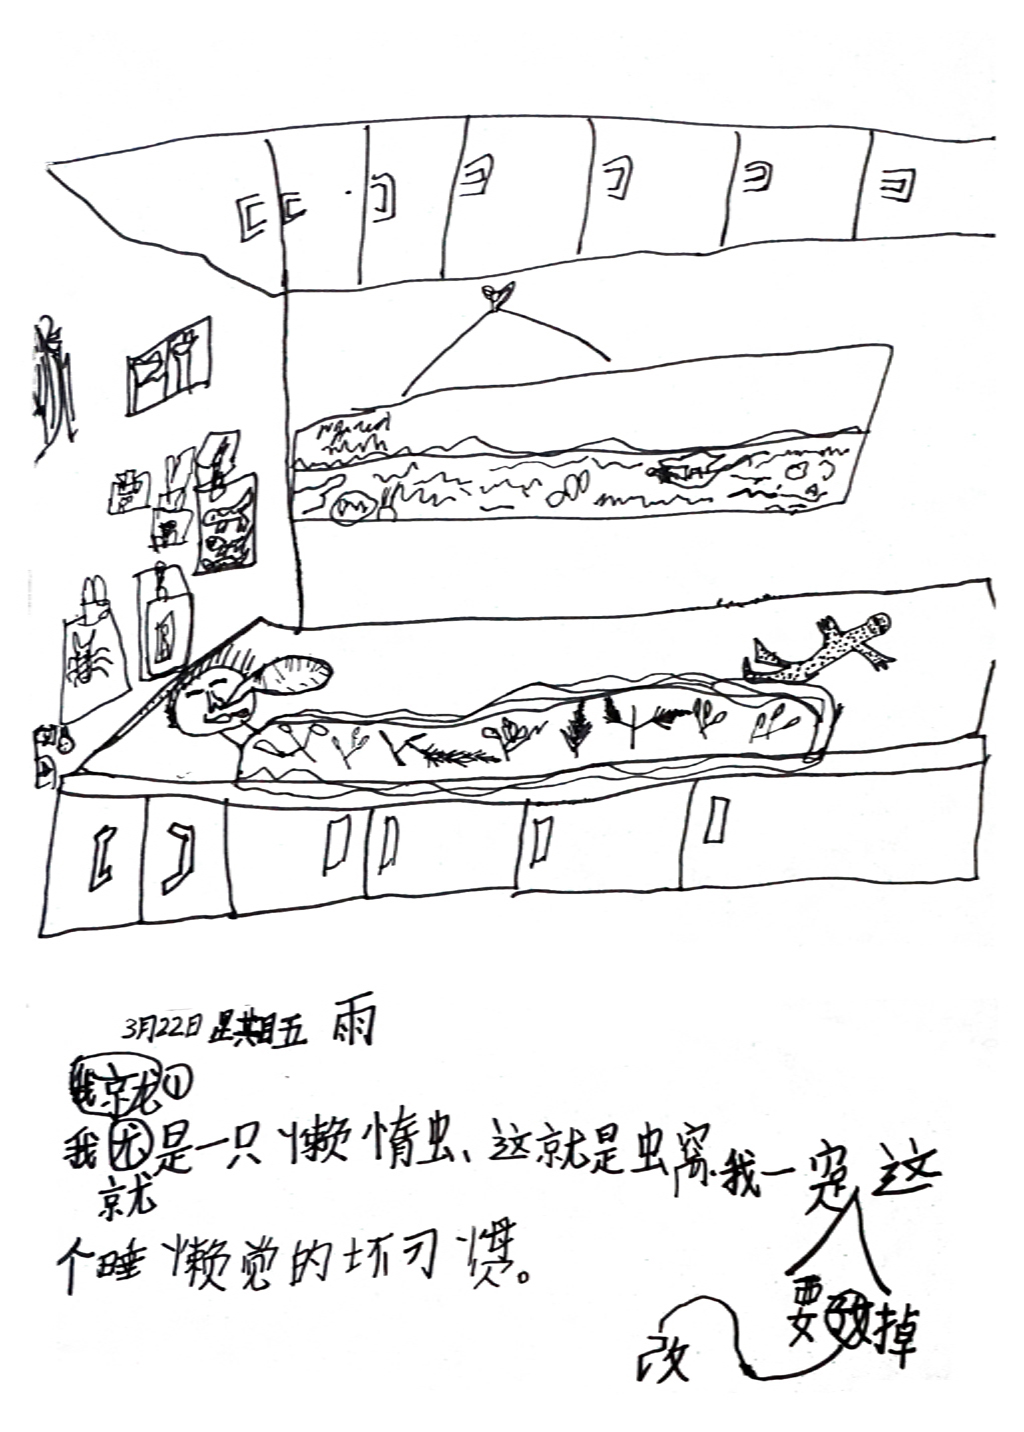 3月22日 星期五 雨
我就①
我是一只懒惰虫、这就是虫窝.我一定这
就
个睡懒觉的坏习惯。
要改掉
改